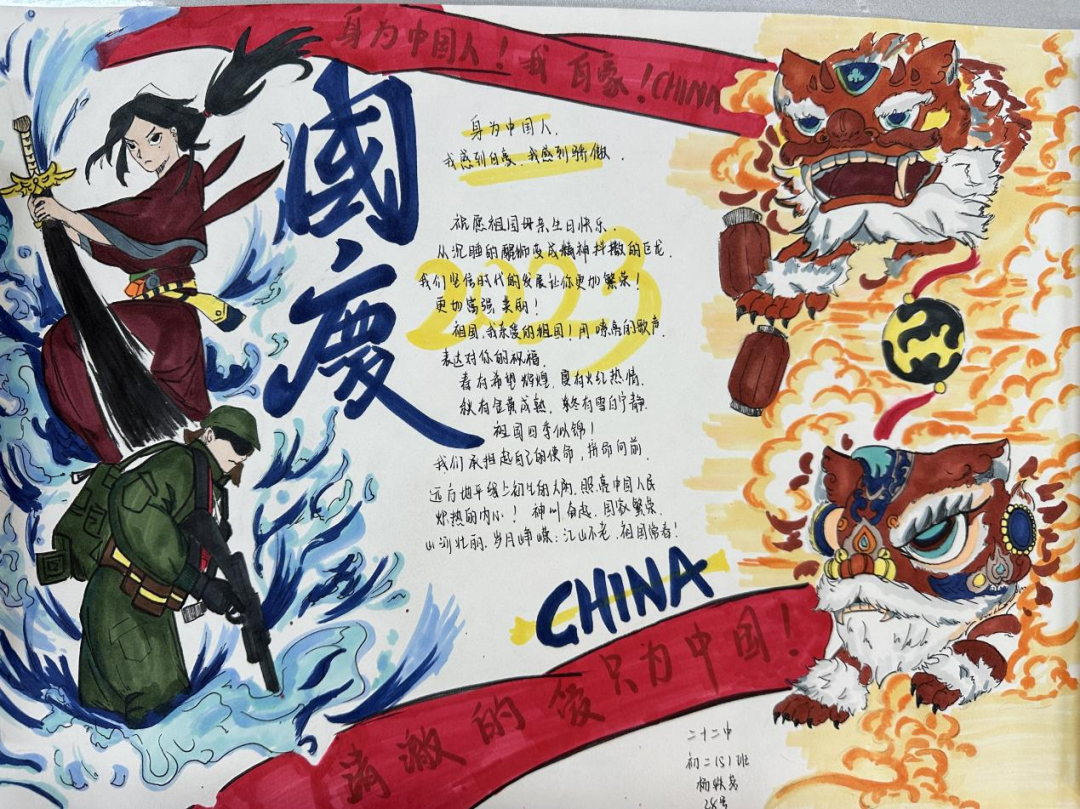 身为中国人！我自豪！CHINA
國慶
身为中国人，
我感到自豪，我感到骄傲．
2023
祝愿祖国母亲生日快乐．
从沉睡的醒狮变成精神抖擞的巨龙．
我们坚信时代的发展让你更加繁荣！
更加富强美丽！
祖国，我亲爱的祖国！用嘹亮的歌声．
表达对你的祝福．
春有希望辉煌，夏有火红热情．
秋有金黄成熟，冬有雪白宁静．
祖国日季似锦！
我们承担起自己的使命，拼搏向前．
远方地平线上初生的太阳，照亮中国人民
炽热的内心！神州奋起，国家繁荣．
山河壮丽，岁月峥嵘；江山不老，祖国常春！
CHINA
清澈的爱只为中国！
二十二中
初二(5)班
杨轶
28号